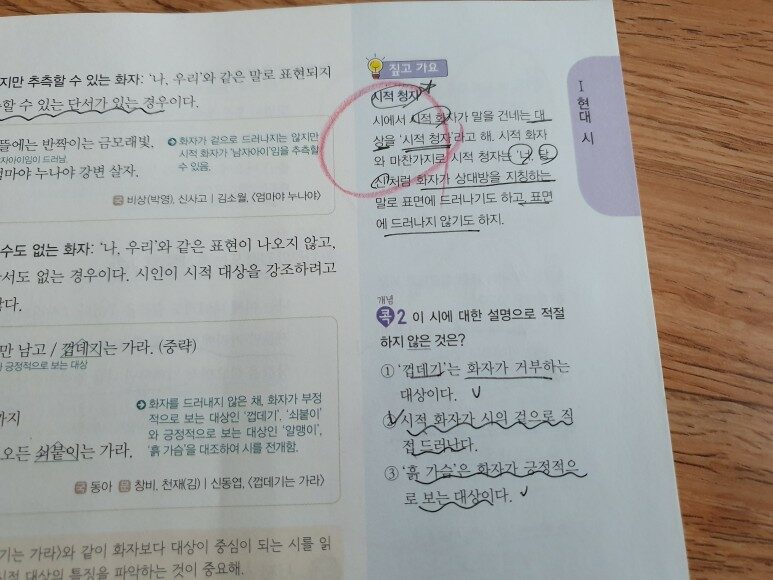 지만 추측할 수 있는 화자: ‘나, 우리’와 같은 말로 표현되지
할 수 있는 단서가 있는 경우이다.
뜰에는 반짝이는 금모래빛.
자아이임이 드러남.
엄마야 누나야 강변 살자.
화자가 겉으로 드러나지는 않지만
시적 화자가 ‘남자아이’임을 추측할
수 있음.
국 비상(박영), 신사고 | 김소월, 〈엄마야 누나야〉
수도 없는 화자: ‘나, 우리’와 같은 표현이 나오지 않고,
서도 없는 경우이다. 시인이 시적 대상을 강조하려고
많다.
만 남고 / 껍데기는 가라. (중략)
긍정적으로 보는 대상
까지
모오든 쇠붙이는 가라.
화자를 드러내지 않은 채, 화자가 부정
적으로 보는 대상인 ‘껍데기’, ‘쇠붙이’
와 긍정적으로 보는 대상인 ‘알맹이’,
‘흙 가슴’을 대조하여 시를 전개함.
국 동아 문 창비, 천재(김) | 신동엽, 〈껍데기는 가라〉
기는 가라〉와 같이 화자보다 대상이 중심이 되는 시를 읽
시적 대상의 특징을 파악하는 것이 중요해.
짚고 가요
시적 청자
시에서 시적 화자가 말을 건네는 대
상을 ‘시적 청자’라고 해. 시적 화자
와 마찬가지로 시적 청자는 ‘너, 당
신’처럼 화자가 상대방을 지칭하는
말로 표면에 드러나기도 하고, 표면
에 드러나지 않기도 하지.
개념
콕 2 이 시에 대한 설명으로 적절
하지 않은 것은?
① ‘껍데기’는 화자가 거부하는
대상이다.
② 시적 화자가 시의 겉으로 직
접 드러난다.
③ ‘흙 가슴’은 화자가 긍정적으
로 보는 대상이다.
I 현대 시